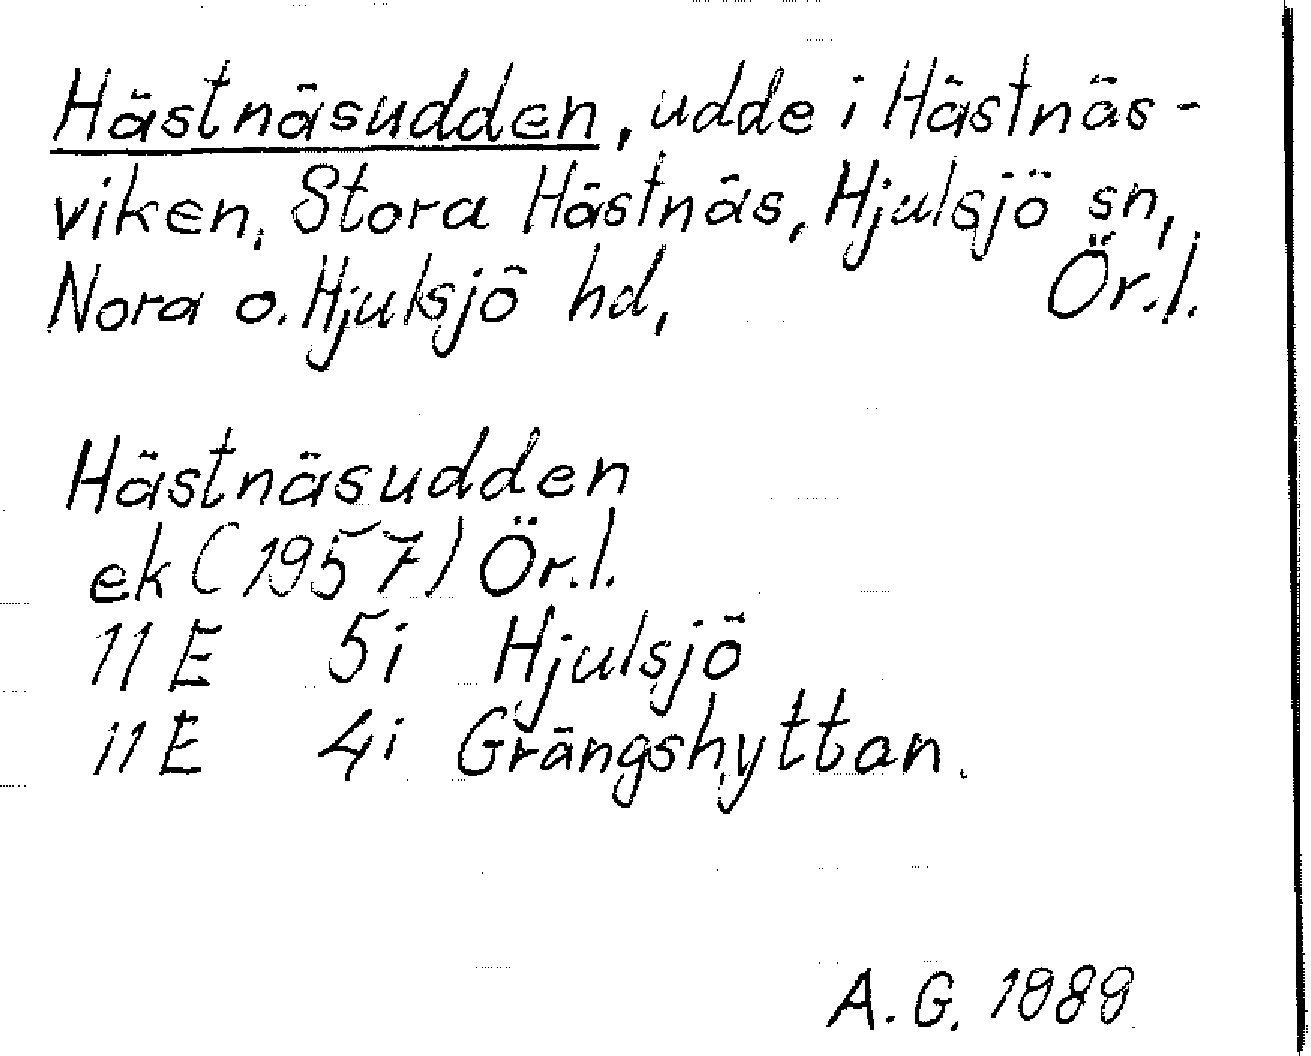 Hästnäsudden, udde i Hästnäs-
viken, Stora Hästnäs, Hjulsjö sn,
Nora o. Hjulsjö hd, Ör.l.
Hästnäsudden
ek (1957) Ör.l.
11 E 5i Hjulsjö
11 E 4i Grängshyttan.
A. G. 1989